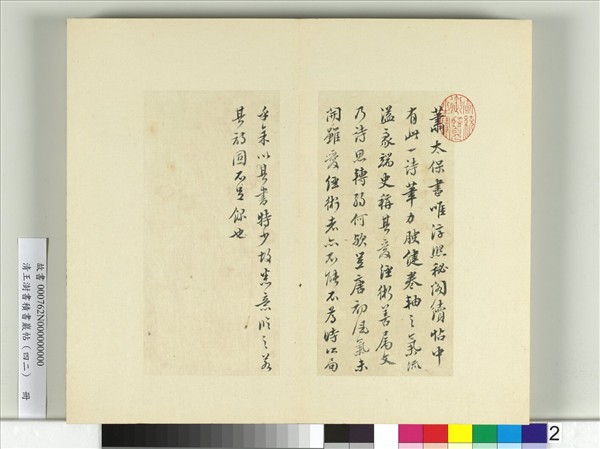 蕭太保書唯淳熙秘閣續帖中
有此一詩筆力駿健卷軸之氣流
溢豪端史稱其愛經術善屬文
乃詩思轉弱何歟豈唐初風氣未
開雖愛經術者亦不能不為時所局
以其書特少故悉意臨之若
其詩固不足錄也
故書 000762N000000000
清王澍書積書巖帖(四二) 冊
2